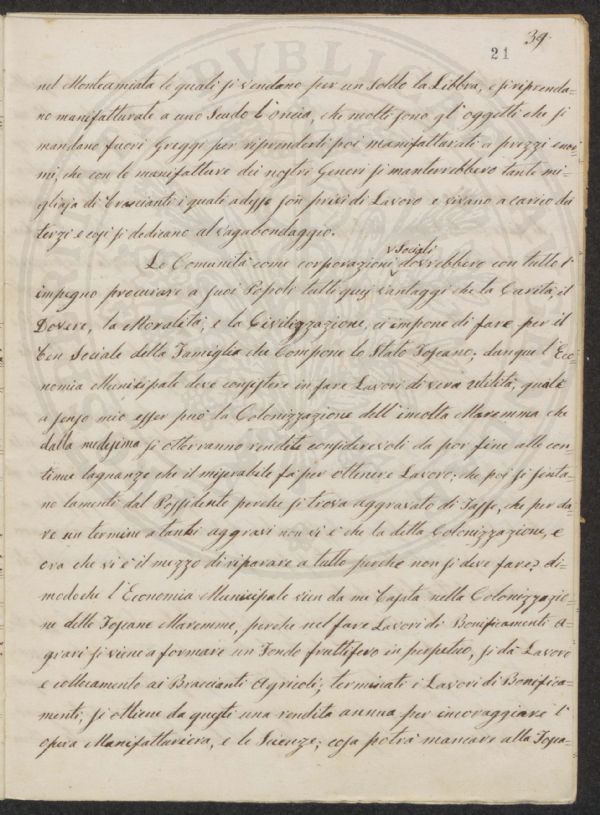 39.
21
nel Montamiata le quali si vendano per un Soldo la Libbra, e si riprenda=
no manifatturate a uno Scudo l'oncia, che molti sono gl'oggetti che si
mandano fuori Greggi per riprenderli poi manifatturati a prezzi enor=
mi, che con le manifatture dei nostri Generi si manterrebbero tante mi=
gliaja di Braccianti i quali adesso son privi di Lavoro e vivano a carico dei
terzi e così si dedicano al vagabondaggio.
Sociali
Le Comunità come corporazioni dovrebbero con tutto l'
impegno procurare a suoi Popoli tutti quei vantaggi che la Carità, il
Dovere, la Moralità, e la Civilizzazione, ci impone di fare per il
ben Sociale della Famiglia che Compone lo Stato Toscano, dunque l'Eco=
nomia Municipale deve consistere in fare Lavori di vera utilità, quale
a senso mio esser può la Colonizzazione dell'incolta Maremma che
dalla medesima si otterranno rendite considerevoli da por fine alle con=
tinue lagnanze che il miserabile fà per ottenere Lavoro; che poi si senta=
no lamenti dal Possidente perchè si trova aggravato di Tasse, che per da=
re un termine a tanti aggravi non vi è che la detta Colonizzazione, e
ora che vi è il mezzo di riparare a tutto perchè non si deve fare? di=
modochè l'Economia Municipale vien da me Capita nella Colonizzazio=
ne delle Toscane Maremme, perchè nel fare Lavori di Bonificamenti A=
grari si viene a formare un Fondo fruttifero in perpetuo, si dà Lavoro
e collocamento ai Braccianti Agricoli; terminati i Lavori di Bonifica=
menti, si ottiene da questi una rendita annua per incoraggiare l'
opera Manifatturiera, e le Scienze; cosa potrà mancare alla Tosca=